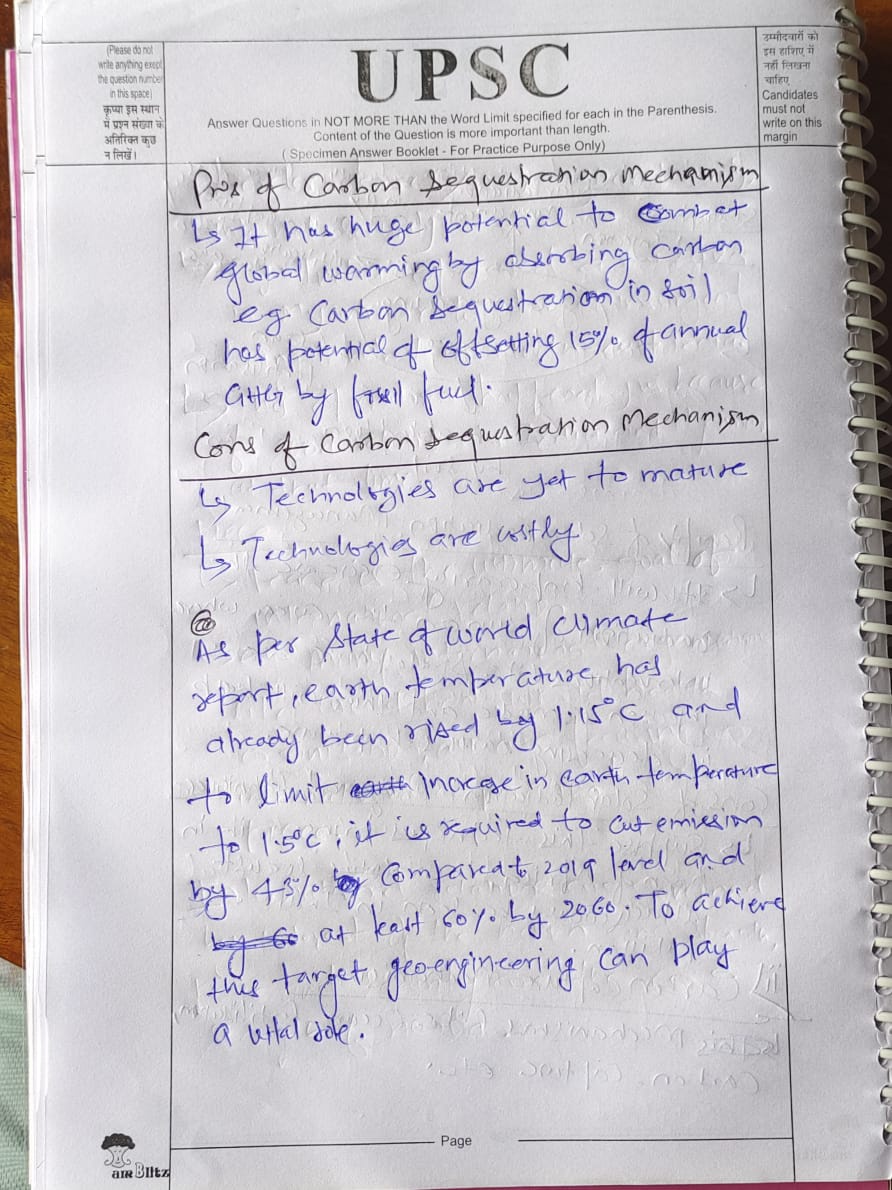 (Please do not
write anything exept
the question number
in this space)
कृप्या इस स्थान
में प्रश्न संख्या के
अतिरिक्त कुछ
न लिखें।
UPSC
Answer Questions in NOT MORE THAN the Word Limit specified for each in the Parenthesis.
Content of the Question is more important than length.
( Specimen Answer Booklet - For Practice Purpose Only)
उम्मीदवारों को
इस हाशिए में
नहीं लिखना
चाहिए
Candidates
must not
write on this
margin
Pros of Carbon Sequestration Mechanism
↳ It has huge potential to Combat
global warming by absorbing carbon
eg. Carbon Sequestration in soil
has potential of offsetting 15% of annual
GHG by fossil fuel.
Cons of Carbon Sequestration Mechanism
↳ Technologies are yet to mature
↳ Technologies are costly
As per State of world climate
report, earth temperature has
already been rised by 1.15°C and
to limit increase in earth temperature
to 1.5°C, it is required to cut emission
by 45% compared to 2019 level and
at least 60% by 2060. To achieve
this target geoengineering can play
a vital role.
Page
AIR Blitz